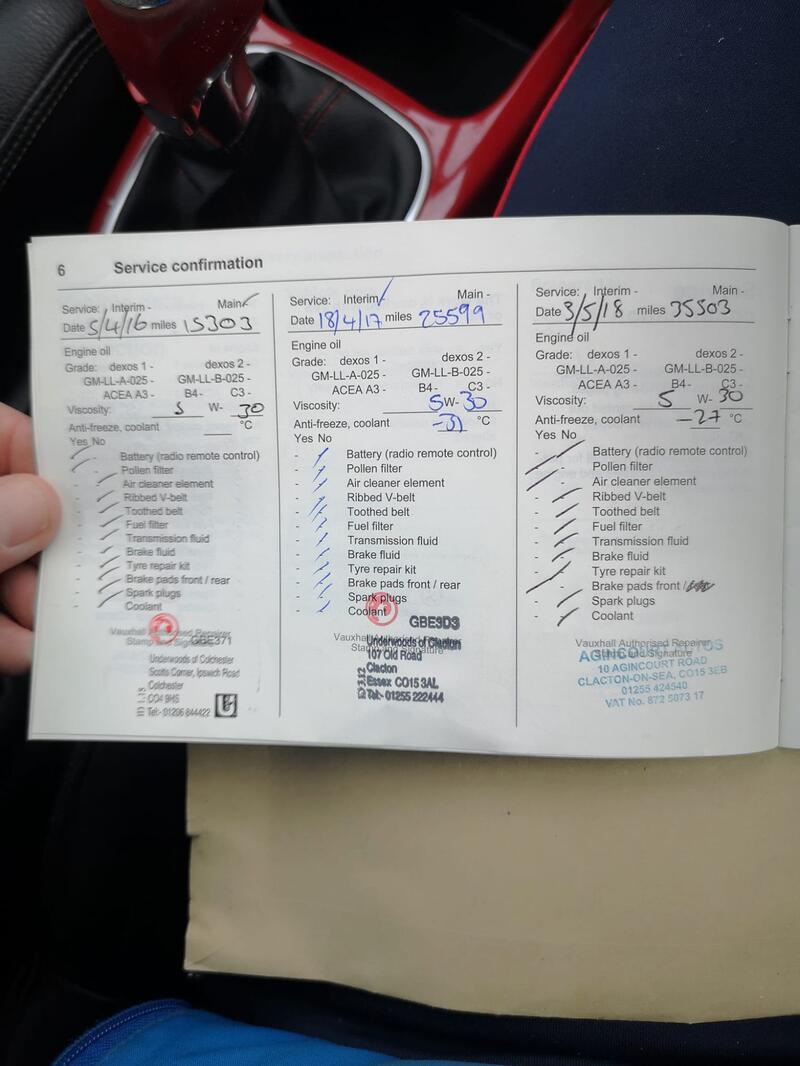 6 Service confirmation
Service: Interim - Main
Date 5/4/16 miles 15303
Engine oil
Grade: dexos 1 - dexos 2 -
GM-LL-A-025 - GM-LL-B-025 -
ACEA A3 - B4- C3 -
Viscosity: 5 W- 30
Anti-freeze, coolant °C
Yes No
- Battery (radio remote control)
- Pollen filter
- Air cleaner element
- Ribbed V-belt
- Toothed belt
- Fuel filter
- Transmission fluid
- Brake fluid
- Tyre repair kit
- Brake pads front / rear
- Spark plugs
- Coolant
Vauxhall Authorised Repairer
Stamp and Signature
GBE371
Underwoods of Colchester
Scotts Corner, Ipswich Road
Colchester
CO4 9HS
Tel:- 01206 844422
Service: Interim Main -
Date 18/4/17 miles 25599
Engine oil
Grade: dexos 1 - dexos 2 -
GM-LL-A-025 - GM-LL-B-025 -
ACEA A3 - B4- C3 -
Viscosity: 5W- 30
Anti-freeze, coolant -31 °C
Yes No
- Battery (radio remote control)
- Pollen filter
- Air cleaner element
- Ribbed V-belt
- Toothed belt
- Fuel filter
- Transmission fluid
- Brake fluid
- Tyre repair kit
- Brake pads front / rear
- Spark plugs
- Coolant
GBE3D3
Vauxhall Authorised Repairer
Stamp and Signature
Underwoods of Clacton
107 Old Road
Clacton
Essex CO15 3AL
Tel:- 01255 222444
Service: Interim - Main -
Date 3/5/18 miles 35303
Engine oil
Grade: dexos 1 - dexos 2 -
GM-LL-A-025 - GM-LL-B-025 -
ACEA A3 - B4- C3 -
Viscosity: 5 W- 30
Anti-freeze, coolant -27 °C
Yes No
- Battery (radio remote control)
- Pollen filter
- Air cleaner element
- Ribbed V-belt
- Toothed belt
- Fuel filter
- Transmission fluid
- Brake fluid
- Tyre repair kit
- Brake pads front /
- Spark plugs
- Coolant
Vauxhall Authorised Repairer
Stamp and Signature
10 AGINCOURT ROAD
CLACTON-ON-SEA, CO15 3EB
01255 424540
VAT No. 872 5073 17